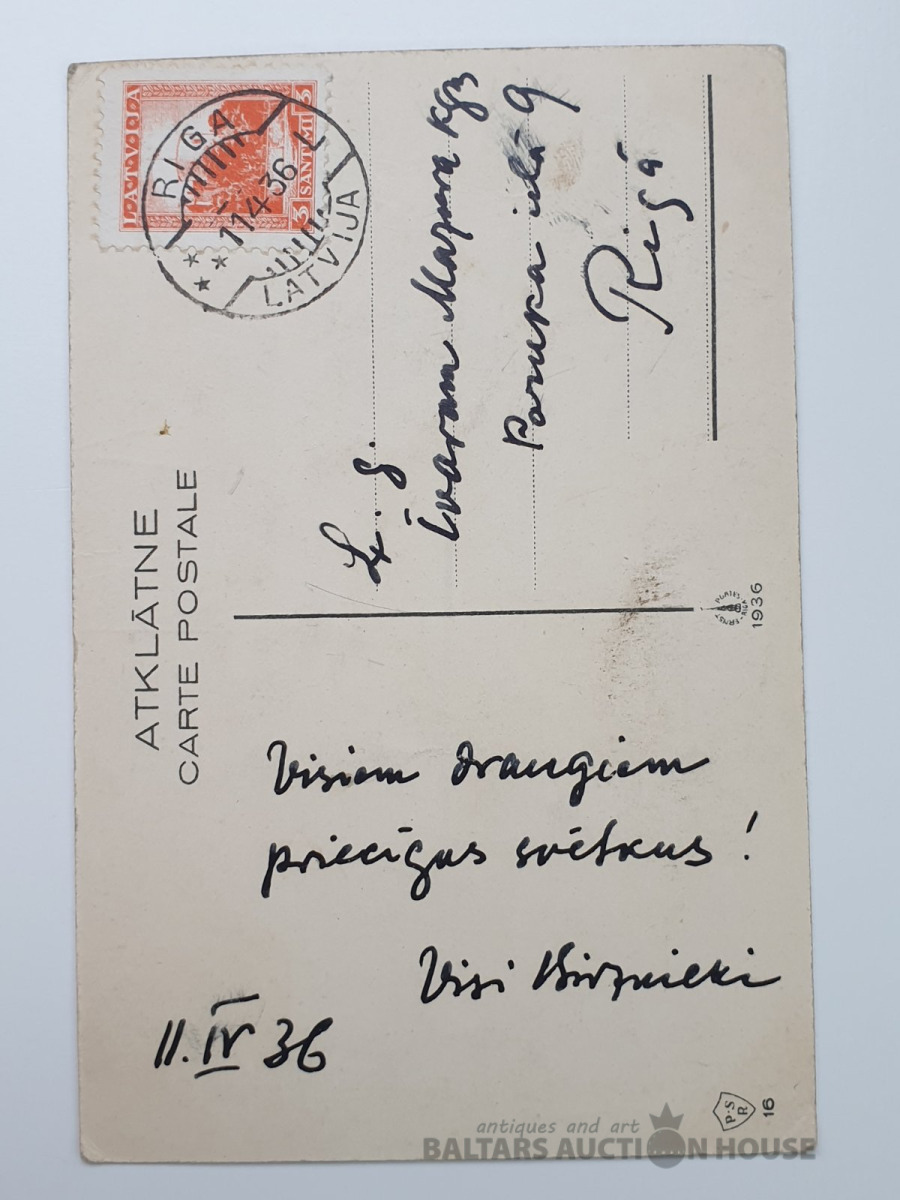 LATVIJA
3 SANTĪMI 3
RIGA
11.4.36
LATVIJA
ATKLĀTNE
CARTE POSTALE
L. g.
Ivaram Mazura kgs
Poruka ielā 9
Rīgā
ERNST PLATES
RIGA
1936
Visiem draugiem
priecīgus svētkus!
Visi Birznieki
11. IV 36
P.S
R
16
antiques and art
BALTARS AUCTION HOUSE